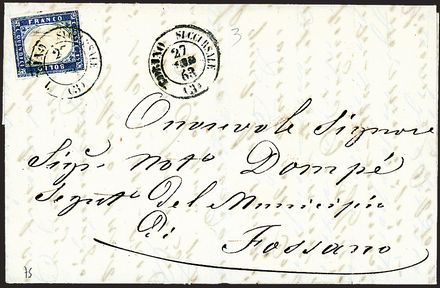 FRANCO
BOLLO
TORINO SUCCURSALE
27
63
(3)
3
Onorevole Signore
Sigr Nota Dompé
Segreto del Municipio
di
Fossano